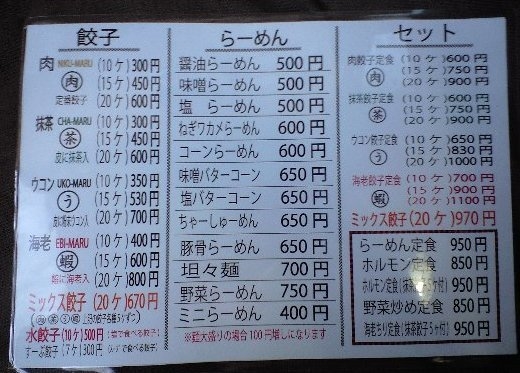 餃子
肉 NIKU-MARU (10ケ) 300円
肉 (15ケ) 450円
定番餃子 (20ケ) 600円
抹茶 CHA-MARU (10ケ) 300円
茶 (15ケ) 450円
皮に抹茶入 (20ケ) 600円
ウコン UKO-MARU (10ケ) 350円
う (15ケ) 530円
皮に粉末ウコン入 (20ケ) 700円
海老 EBI-MARU (10ケ) 400円
蝦 (15ケ) 600円
餡に海老入 (20ケ) 800円
ミックス餃子 (20ケ) 670円
上記の餃子各種5ケずつ
水餃子 (10ケ) 500円
すーぷ餃子 (7ケ) 300円
らーめん
醤油らーめん 500円
味噌らーめん 500円
塩 らーめん 500円
ねぎワカメらーめん 600円
コーンらーめん 600円
味噌バターコーン 650円
塩バターコーン 650円
ちゃーしゅーめん 650円
豚骨らーめん 650円
坦々麺 700円
野菜らーめん 750円
ミニらーめん 400円
※麺大盛りの場合100円増しになります
セット
肉餃子定食 (10ケ) 600円
肉 (15ケ) 750円
(20ケ) 900円
抹茶餃子定食 (10ケ) 600円
茶 (15ケ) 750円
(20ケ) 900円
ウコン餃子定食 (10ケ) 650円
う (15ケ) 830円
(20ケ) 1000円
海老餃子定食 (10ケ) 700円
蝦 (15ケ) 900円
(20ケ) 1100円
ミックス餃子 (20ケ) 970円
らーめん定食 950円
ホルモン定食 850円
ホルモン定食(抹茶餃子5ヶ付) 950円
野菜炒め定食 850円
海老もり定食(抹茶餃子5ヶ付) 950円